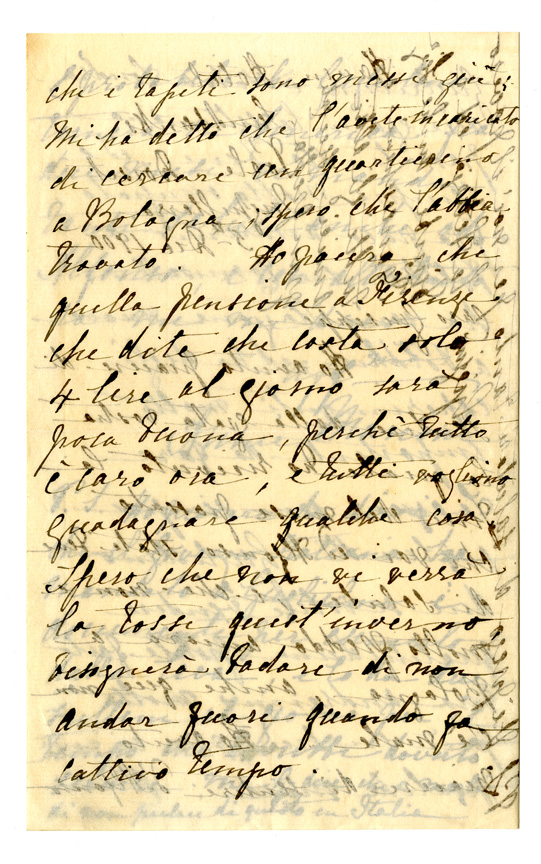 che i tapeti sono messi giù;
Mi ha detto che l'avete incaricato
di cercare un quartierino
a Bologna, spero che l'abbia
trovato. Ho paura che
quella pensione a Firenze
che dite che costa solo
4 lire al giorno sarà
poca buona, perchè tutto
è caro ora, e tutti vogliono
guadagnare qualche cosa.
Spero che non vi verrà
la tosse quest'inverno
bisognerà badare di non
andar fuori quando fa
cattivo tempo.